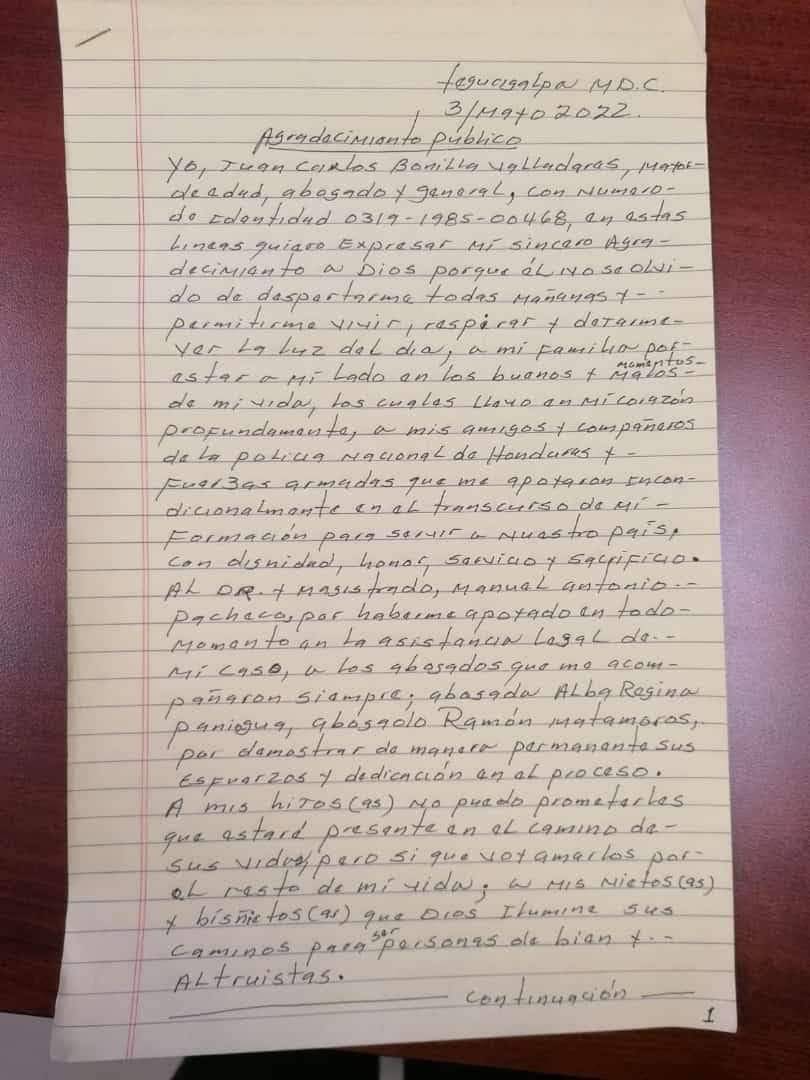 Tegucigalpa M.D.C.
3/Mayo 2022.
Agradecimiento Público
Yo, Juan Carlos Bonilla Valladares, Mayor-
de edad, abogado y general, con Numero-
de Identidad 0319-1985-00468, en estas
Lineas quiero Expresar Mi sincero Agra-
decimiento a Dios porque él No se olvi-
do de despertarme todas Mañanas y --
permitirme vivir, respirar y dejarme-
ver La Luz del dia, a mi Familia por-
estar a Mi Lado en los buenos y Malos momentos-
de mi vida, los cuales llevo en Mi corazón
profundamente, a mis amigos y compañeros
de la policia Nacional de Honduras y -
Fuerzas armadas que me apoyaron Incon-
dicionalmente en el transcurso de Mi -
Formación para servir a Nuestro país,
con dignidad, honor, servicio y sacrificio.
AL DR. y Magistrado, Manuel antonio --
pacheco, por haberme apoyado en todo-
Momento en la asistencia legal de --
Mi caso, a los abogados que me acom-
pañaron siempre; abogada ALba Regina
paniagua, abogado Ramón Matamoros,
por demostrar de manera permanente sus
Esfuerzos y dedicación en el proceso.
A mis hijos(as) No puedo prometerles
que estaré presente en el camino de-
sus vidas, pero si que voy amarlos por-
el resto de mi vida; a Mis Nietos(as)
y bisñietos(as) que Dios Ilumine sus
Caminos para ser personas de bien y --
ALtruistas.
continuación
1